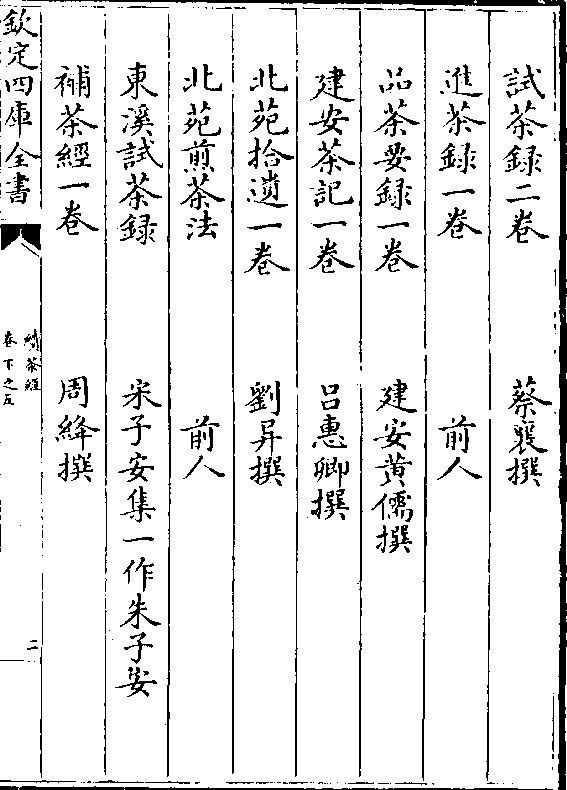 試茶録二卷　蔡襄撰
進茶録一卷　前人
品茶要録一卷　建安黄儒撰
建安茶記一卷　吕惠卿撰
北苑拾遺一卷　劉异撰
北苑煎茶法　前人
東溪試茶録　宋子安集一作朱子安
補茶經一卷　周絳撰
欽定四庫全書
續茶經
卷下之五
二